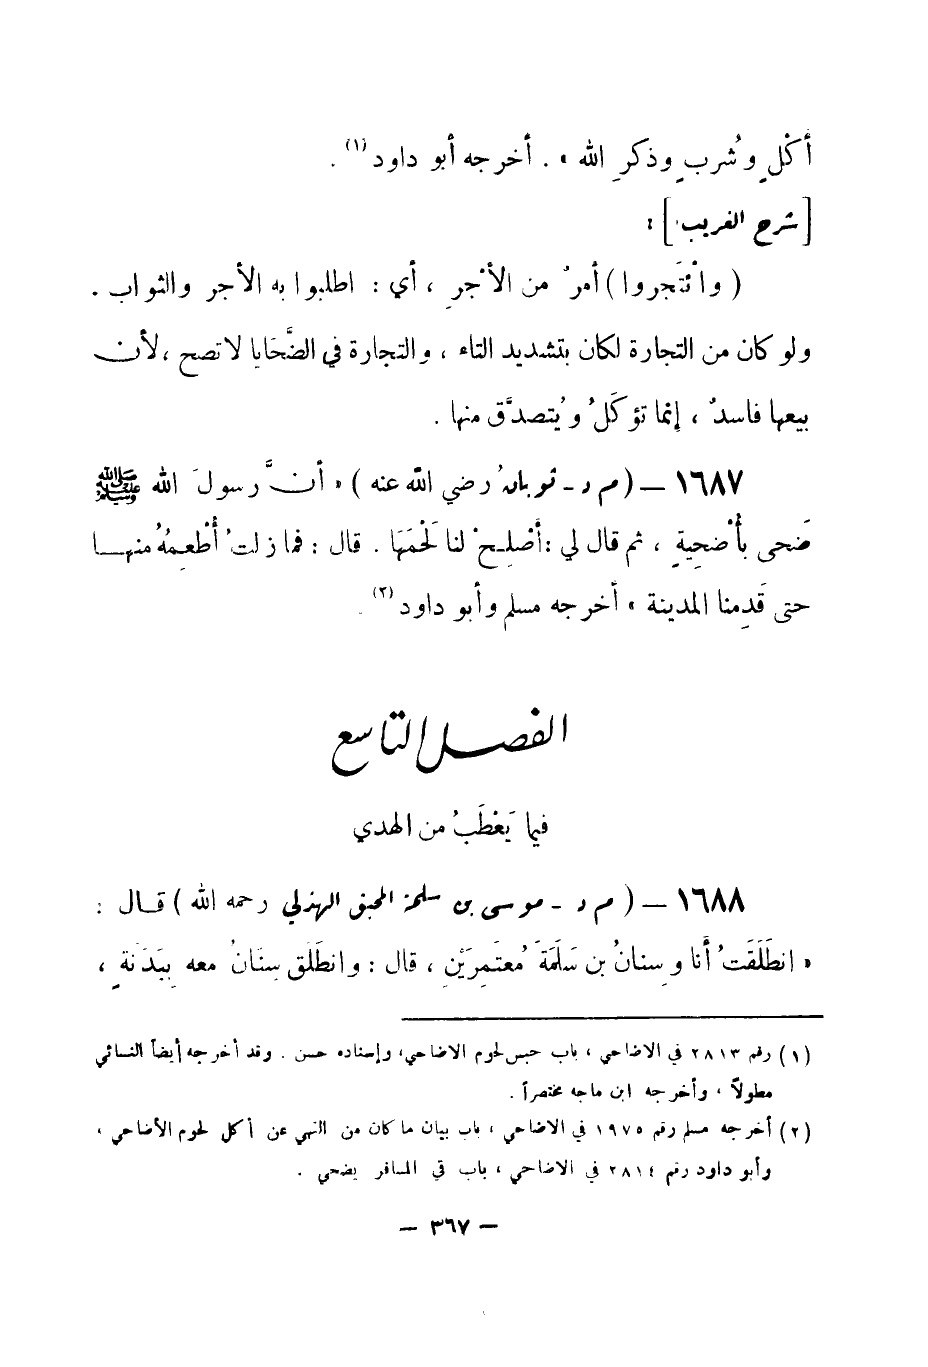 أكْلٍ وشُربٍ وذكرِ الله » . أخرجه أبو داود (١) .
[ شرح الغريب ] :
( وائْتَجروا ) أمرٌ من الأجْرِ ، أي : اطلبوا به الأجر والثواب .
ولو كان من التجارة لكان بتشديد التاء ، والتجارة في الضَّحَايا لا تصح ، لأن
بيعها فاسدٌ ، إنما تؤكَلُ ويُتصدَّق منها .
١٦٨٧ – ( م د - ثوبان رضي الله عنه ) « أنَّ رسولَ الله ﷺ
ضَحى بأُضْحِيةٍ ، ثم قال لي : أصْلِحْ لنا لَحْمَهَا . قال : فما زلتُ أُطْعِمُهُ منها
حتى قَدِمنا المدينة » أخرجه مسلم وأبو داود (٢) .
الفصل التاسع
فيما يَعْطَبُ من الهدي
١٦٨٨ – ( م د - موسى بن سلمة المحبق الهذلي رحمه الله ) قال :
« انطَلَقَتُ أنا وسِنانُ بن سَلَمَةَ مُعتَمِرَيْنِ ، قال : وانطَلَق سِنَانُ معه بِبَدَنَةٍ ،
(١) رقم ٢٨١٣ في الاضاحي ، باب حبس لحوم الاضاحي، وإسناده حسن . وقد أخرجه أيضاً النسائي
مطولاً ، وأخرجه ابن ماجه مختصراً .
(٢) أخرجه مسلم رقم ١٩٧٥ في الاضاحي ، باب بيان ما كان من النهي عن أكل لحوم الأضاحي ،
وأبو داود رقم ٢٨١٤ في الاضاحي ، باب في المسافر يضحي .
– ٣٦٧ –